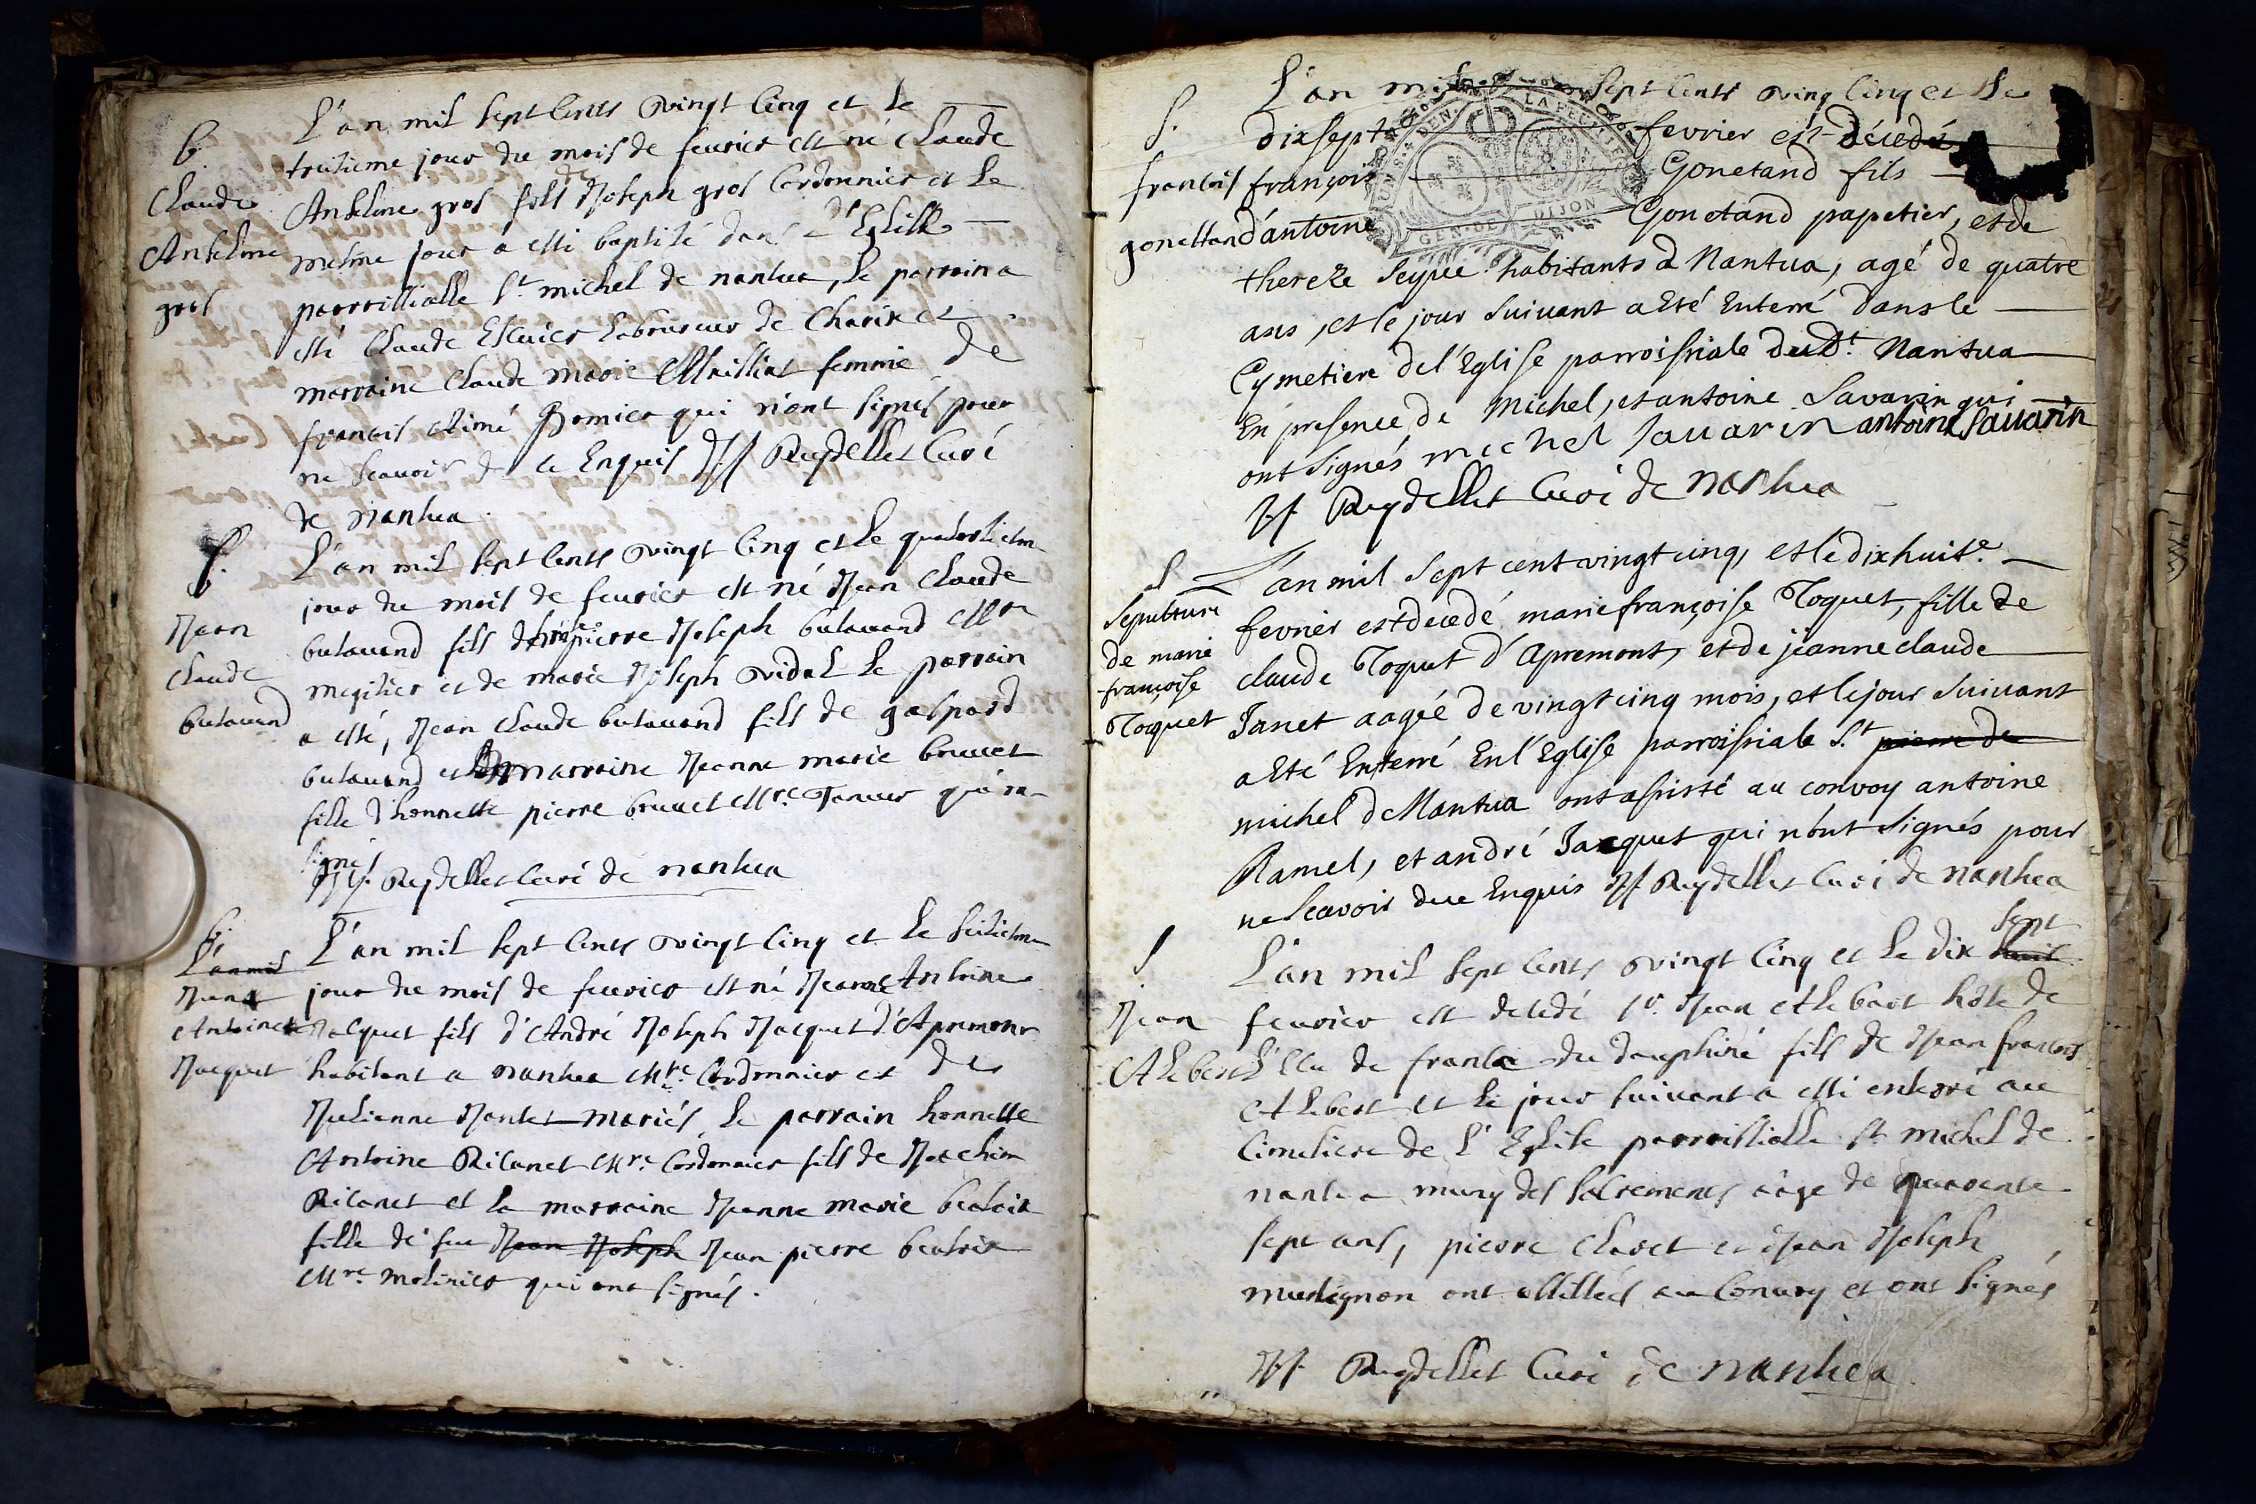 b.
Claude
Anselme
gros
L'an mil sept cents vingt cinq et le
treisieme jour du mois de feurier est né Claude
Anselme gros fils de Joseph gros Cordonnier et le
mesme jour a esté baptisé dans Eglise
parroissialle St. michel de nantua, le parrain a
esté Claude laboureur de Charix et
marraine Claude Marie Maissiat femme de
francois Aimé qui n'ont signés pour
ne scauoir de ce Enquis JJ Reydellet Curé
de nantua.
b.
Jean
Claude
butauand
L'an mil sept cents vingt cinq et le quatorsieme
jour du mois de feurier est né Jean Claude
butauand fils d' pierre Joseph butauand Mre
megitier et de marie Joseph vidal le parrain
a esté, Jean Claude butauand fils de gaspard
butauand et la marraine Jeanne marie bruuet
fille d'honneste pierre bruuet Mre Tanneur qui n'a
signés
JJ. Reydellet Curé de nantua
b.
L'an mil
Jean
Antoine
Jacquet
L'an mil sept cents vingt cinq et le seisieme
jour du mois de feurier est né Jean Antoine
Jacquet fils d'André Joseph Jacquet d'Apremont
habitant a nantua Mre. Cordonnier et de
Julienne mariés, le parrain honneste
Antoine Ricanet Mre. Cordonnier fils de Joachim
Ricanet et la marraine Jeanne marie beatrix
fille de feu Jean Joseph Jean pierre beatrix
Mre. qui ont signés.
S.
francois
gonettand
L'an mil sept cents vingt cinq et le
dixsept fevrier est décedé
françois Gonetand fils
d'antoine Gonetand papetier, et de
thereze Seyue habitants à Nantua, agé de quatre
ans, et le jour suiuant a Eté Enterré dans le
Cymetiere de l'Eglise parroissiale du dt. Nantua
En presence de Michel, et antoine Savarin qui
ont signés michel sauarin antoine sauarin
JJ. Reydellet Curé de nantua
S
Sepulture
de marie
françoise
Toquet
L'an mil sept cent vingt cinq, et le dix huite.
fevrier est decedé marie françoise Toquet, fille de
claude Toquet d'Apremont, et de jeanne claude
Janet aagée de vingt cinq mois, et le jour Suiuant
a Eté Enterré En l'Eglise parroissiale St. pierre de
michel de Nantua ont assisté au convoy antoine
Ramel, et andré Jacquet qui n'ont signés pour
ne scavoir de ce Enquis JJ. Reydellet Curé de nantua
S
Jean
Alebert
L'an mil sept cents vingt cinq et le dix huit sept
feurier est decedé Sr. Jean Alebert hôte de
l'Ecu de france du dauphiné fils de Jean francois
Alebert et le jour suiuant a esté enterré au
Cimetiere de l'Eglise parroissialle St michel de
nantua muny des sacrements aage de quarente
sept ans, pierre et Jean Joseph
ont assistés au Conuoy et ont signés
JJ. Reydellet Curé de nantua.